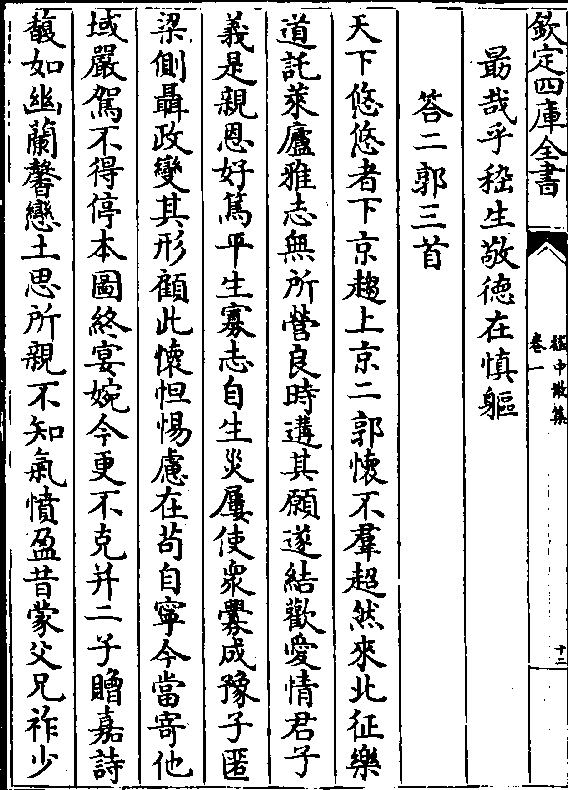 欽定四庫全書
嵇中散集
卷一
十二
勗哉乎嵇生敬德在慎軀
答二郭三首
天下悠悠者下京趨上京二郭懷不羣超然來北征樂
道託萊廬雅志無所營良時遘其願遂結歡愛情君子
義是親恩好篤平生寡志自生災屢使衆釁成豫子匿
梁側聶政變其形顧此懷怛惕慮在茍自寧今當寄他
域嚴駕不得停本圖終宴婉今更不克并二子贈嘉詩
馥如幽蘭馨戀土思所親不知氣憤盈昔蒙父兄祚少